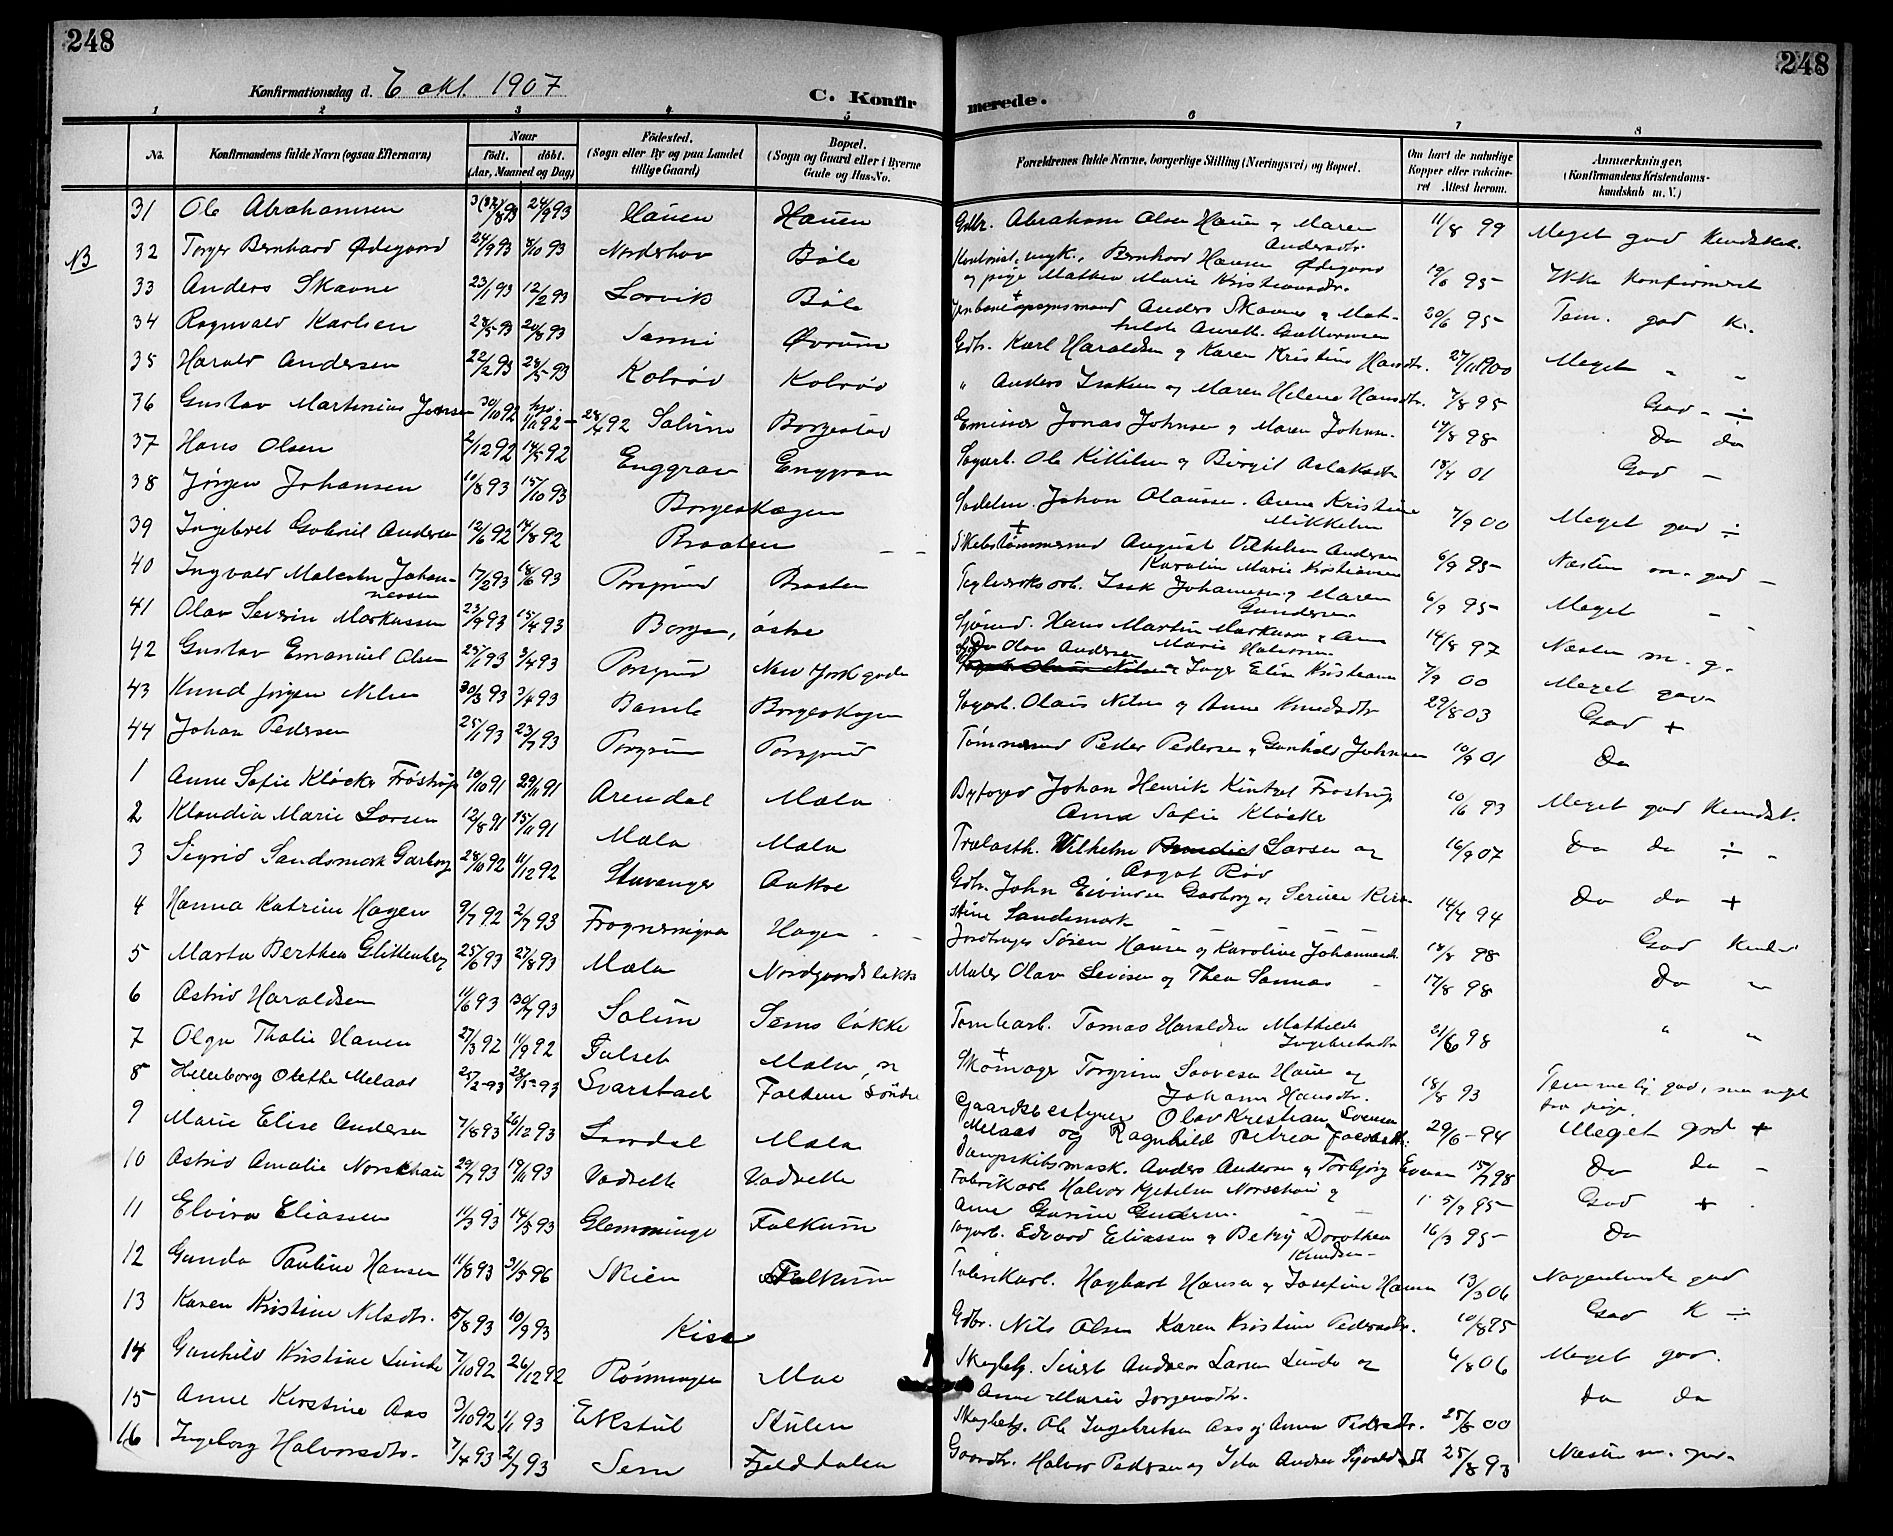 248
248
Konfirmationsdag d. 6 okt. 1907
C. Konfirmerede.
1 2 3 4 5 6 7 8
No.
Konfirmandens fulde Navn (ogsaa Efternavn)
Naar
født. døbt.
(Aar, Maaned og Dag)
Fødested.
(Sogn eller By og paa Landet tillige Gaard)
Bopæl.
(Sogn og Gaard eller i Byerne Gade og Hus-No.
Forældrenes fulde Navne, borgerlige Stilling (Næringsvei) og Bopæl.
Om havt de naturlige Kopper eller vakcineret Attest herom.
Anmærkninger.
(Konfirmandens Kristendomskundskab m. V.)
31 Ole Abrahamsen 24/9 93 Hauen Hauen Gdbr. Abraham Olsen Hauen og Maren Andersdtr. 11/8 99 Meget god Kundskab.
NB 32 Torger Bernhard Ødegaard 24/9 93 8/10 93 Norderhov Bøle Bernhard Hansen Ødegaard og pige Mathea Marie Kristiansdtr. 19/6 95 Ikke konfirmert
33 Anders Skavne 23/1 93 12/2 93 Larvik Bøle Anders Skavne 20/6 95 Tem. god K.
34 Ragnvald Karlsen 28/5 93 20/8 93 Sanni Øvrum Gdbr. Karl Haraldsen og Karen Kristine Hansdtr. 27/11 1900 Meget " "
35 Harald Andersen 22/2 93 28/5 93 Kolrød Kolrød " Anders Isaksen og Maren Helene Hansdtr. 7/8 95 God - ÷
36 Gustav Martinius Jonsen 30/10 92 28/4 92 Solum Borgestad Jonas Johnsen og Maren Johnsen 17/8 98 Do do
37 Hans Olsen 2/12 92 14/5 92 Enggrav Enggrav Sagarb. Ole Kittilsen og Birgit Aslaksdtr 18/7 01 God -
38 Jørgen Johansen 10/8 93 15/10 93 Borgeskogen Johan Olaussen. Anne Kristine Mikkelsen 7/9 00 Meget god ÷
39 Ingebret Gabriel Andersen 12/6 92 14/8 92 Braaten - - August Vilhelm Andersen Karolin Marie Kristiansen 6/9 95 Næsten m. god -
40 Ingvald Malcolm Johannessen 17/2 93 18/6 93 Porsgrund Braaten Teglverksarb. Isak Johannesen og Maren Gundersen 6/9 95 Meget -
41 Olav Severin Markussen 23/2 93 15/4 93 Borge, østre Sjømd. Hans Martin Markussen 14/8 97 Næsten m. g.
42 Gustav Emanuel Olsen 25/1 93 3/4 93 Porsgrund New York gade Do Olav Andersen og Inger Elise Kristiansen 7/9 00 Meget god
43 Knud Jørgen Nilsen 30/3 93 3/4 93 Bamle Borgeskogen Sagarb. Olaus Nilsen og Anne Knudsdtr 29/8 03 God +
44 Johan Pedersen 25/1 93 23/7 93 Porsgrund Porsgrund Tømmermd Peder Pedersen og Gunhild Johnsen 10/9 01 Do
1 Anne Sofie Kløcker Frøstrup 10/10 91 29/11 91 Arendal Mæla Byfoged Johan Henrik Kintzel Frostrup Anna Sofie Kløcke 10/6 93 Meget god Kundsk.
2 Klaudia Marie Larsen 12/8 91 15/11 91 Mæla Mæla Trælasth. Vilhelm Larsen og Aagot Rød 16/9 07 Do do ÷ -
3 Sigrid Sandsmark Garborg 28/10 92 11/12 92 Stavanger Aakre Gdbr. John Eivindsen Garborg og Serine Kirstine Sandsmark 14/4 94 Do do +
4 Hanna Katrine Hagen 9/7 92 2/7 93 Frognersmyra Hagen - - Søren Hansen og Karoline Johannesdtr 18/8 98 God Kundsk
5 Marta Berthea Glittenberg 25/6 93 27/8 93 Mæla Nordgaards løkke Maler Olav Sevisen og Thea Sannas 17/8 98 Do "
6 Astrid Haraldsen 11/6 93 30/7 93 Solum Sems løkke Tomas Haraldsen Mathilde Ingebretsdtr 21/6 98 " "
7 Olga Thalie Hauen 27/3 92 11/9 92 Falset Mæla, n Skomager Torgrim Hauen og Johanne Hansdtr. 18/8 93 Temmelig god, men
8 Helleborg Olette Melaas 25/2 93 28/5 93 Svarstad Falkum søndre Gaardsbestyrer Olav Kristian Svensen Melaas og Ragnhild Petrea 29/6 94 Meget god +
9 Marie Elise Andersen 7/8 93 26/12 93 Mæla Dampskibsmask. Anders Andersen og Torbjørg Evensen 15/7 98 Do do -
10 Astrid Amalie Norschau 29/7 93 19/11 93 Vadrette Vadrette Fabrikarb. Halvor Kjetilsen Norschau og Anne Gurine Gundersen. 5/9 95 God +
11 Elvira Eliassen 11/3 93 14/5 93 Glemminge Falkum Sagarb. Edvard Eliassen og Betsy Dorothea Knudsen 16/3 95 Do
12 Gunda Pauline Hansen 11/8 93 31/5 96 Skien Falkum Fabrikarb. Hagbart Hansen og Josefine Hansen 13/3 06 Nogenlunde god
13 Karen Kristine Nilsdtr. 5/8 93 10/9 93 Kise Gdbr. Nils Olsen Karen Kristine Pedersdtr. 10/8 95 God K ÷
14 Gunhild Kristine Lunde 7/10 92 26/12 92 Rønningen Moe Skogbetj. Sivert Andreas Larsen Lunde og Anne Marie Jørgensdtr. 6/8 06 Meget god.
15 Anne Kirstine Aas 3/10 92 1/1 93 Ekstul Stulen Skogbetj. Ole Ingebretsen Aas og Anna Pedersdtr. 25/8 00 Do do
16 Ingeborg Halvorsdtr. 7/4 93 2/7 93 Sem Fjelddalen Gaardbr. Halvor Pedersen og Ida Andrea 25/8 93 Næsten m. god